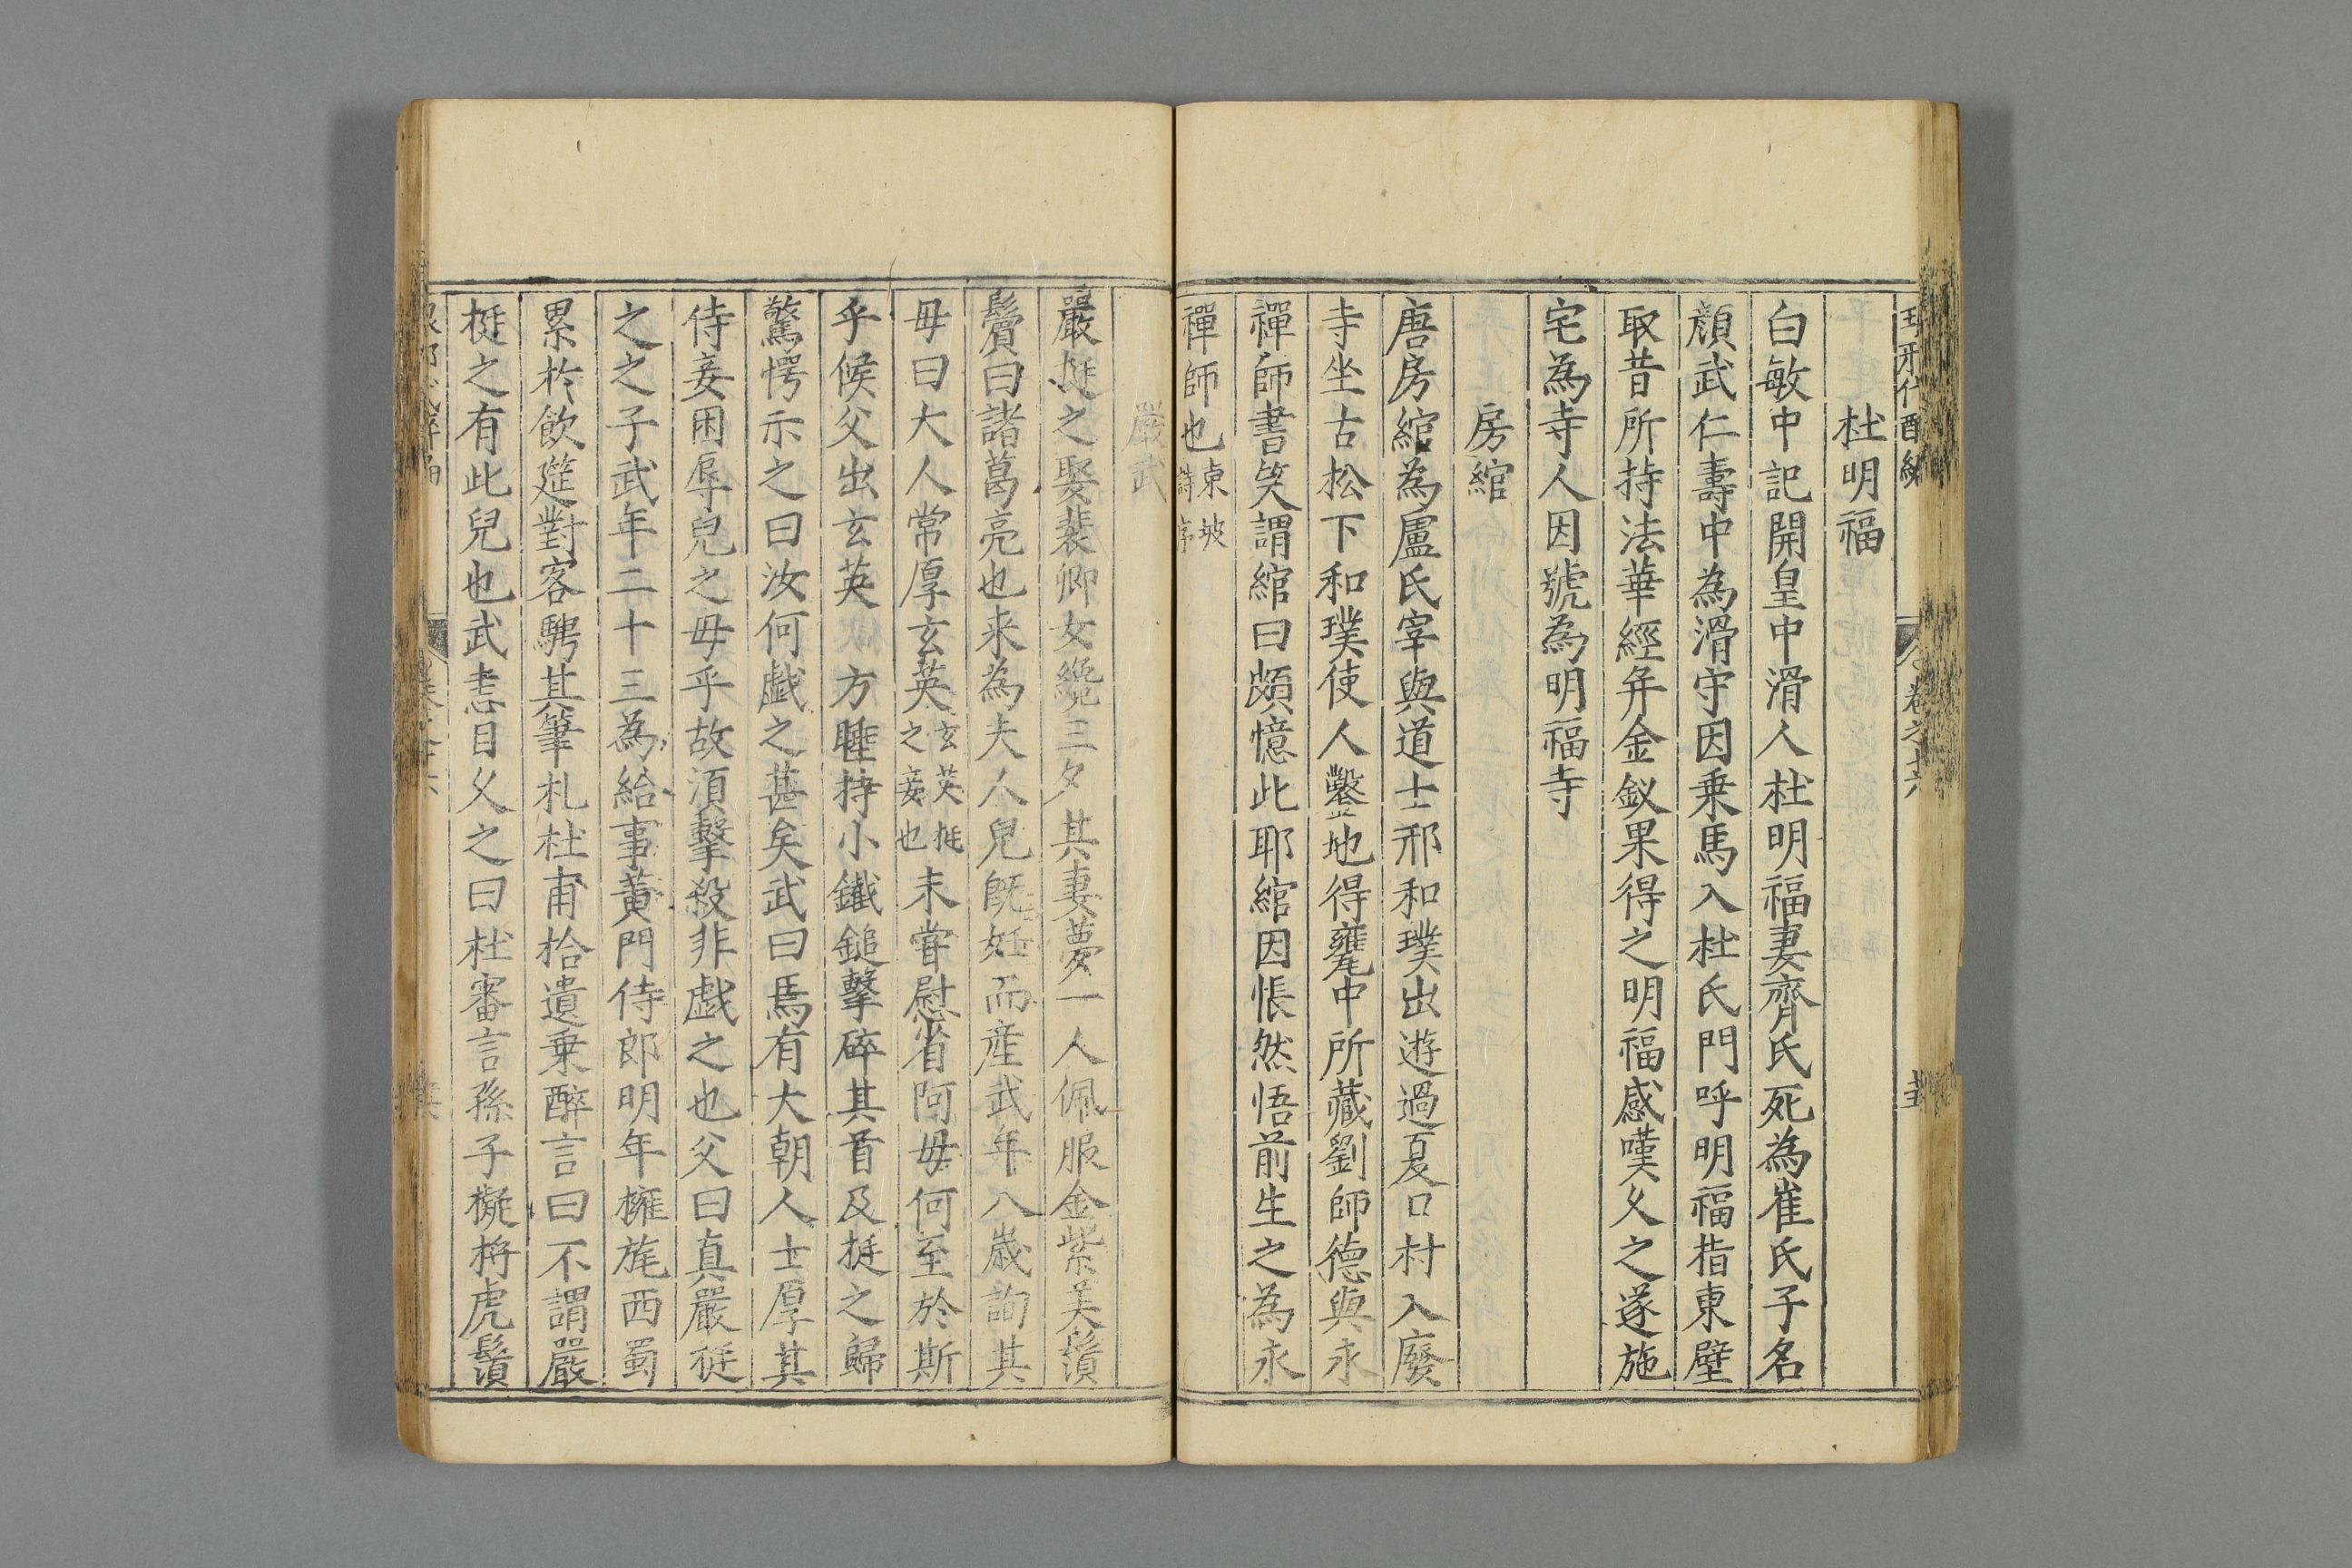 卷之十六
杜明福
白敏中記開皇中滑人杜明福妻齊氏死為崔氏子名
顔武仁壽中為滑守因乗馬入杜氏門呼明福指東壁
取昔所持法華經并金釵果得之明福感嘆乆之遂施
宅為寺人因號為明福寺
房綰
唐房綰為盧氏宰與道士邢和璞出遊過夏口村入廢
寺坐古松下和璞使人鑿地得甕中所藏劉師德與永
禪師書笑謂綰曰頗憶此耶綰因悵然悟前生之為永
禪師也東坡詩序
嚴武
嚴挺之娶裴卿女纔三夕其妻夢一人佩服金紫美鬚
鬢曰諸葛亮也来為夫人兒旣妊而産武年八歲詢其
毋曰大人常厚玄英玄英挺之妾也未嘗慰省阿毋何至於斯
乎候父出玄英方睡持小鐵鎚擊碎其首及挺之歸
驚愕示之曰汝何戯之甚矣武曰焉有大朝人士厚其
侍妾困辱兒之毋乎故湏擊殺非戯之也父曰真嚴挺
之之子武年二十三為給事黄門侍郎明年擁旄西蜀
累於飲筵對客騁其筆札杜甫拾遺乗醉言曰不謂嚴
挺之有此兒也武恚目乆之曰杜審言孫子擬捋虎鬚